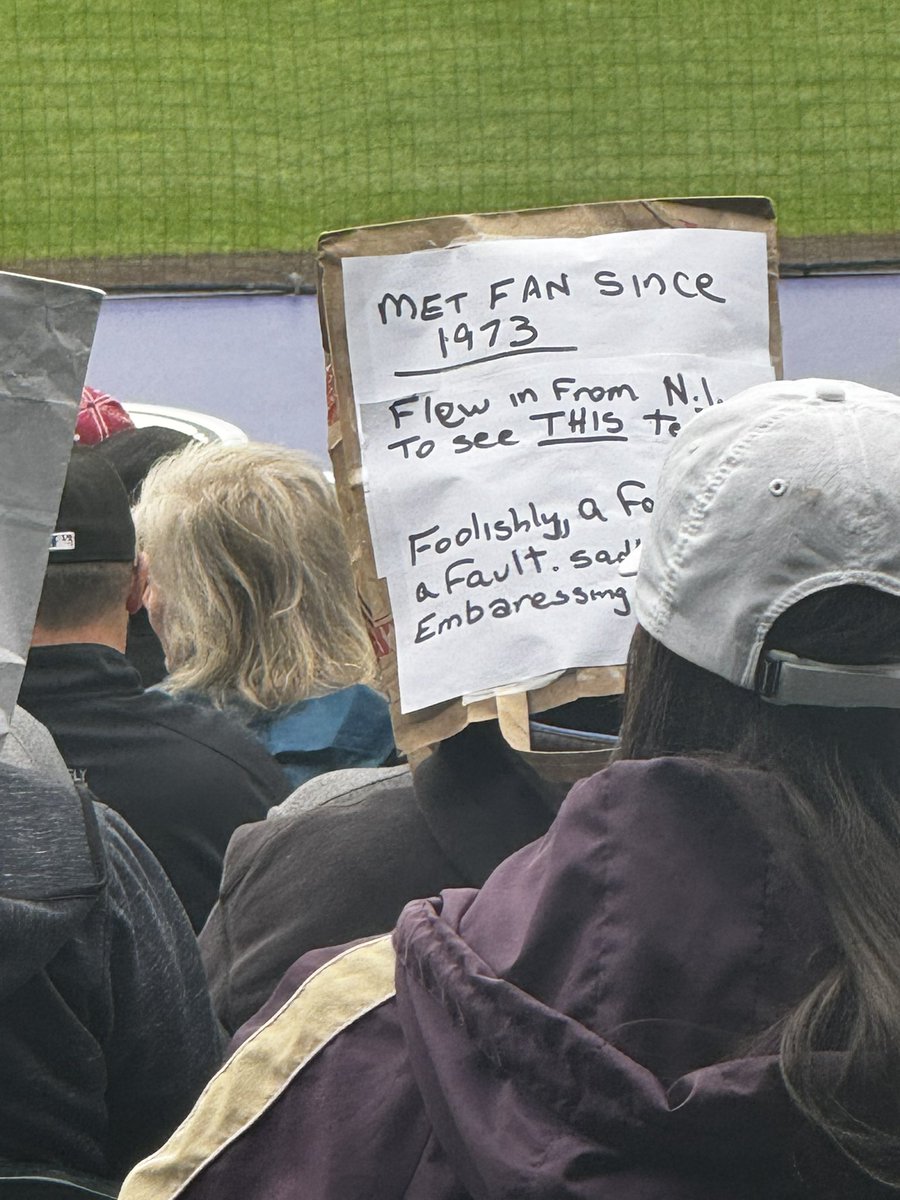 MET FAN Since
1973
Flew in From N.J.
To see THIS
Foolishly, a
a Fault.
Embaressing